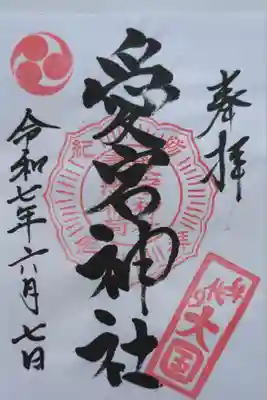 奉拝
愛宕神社
令和七年六月七日
参拝
紀念
大国